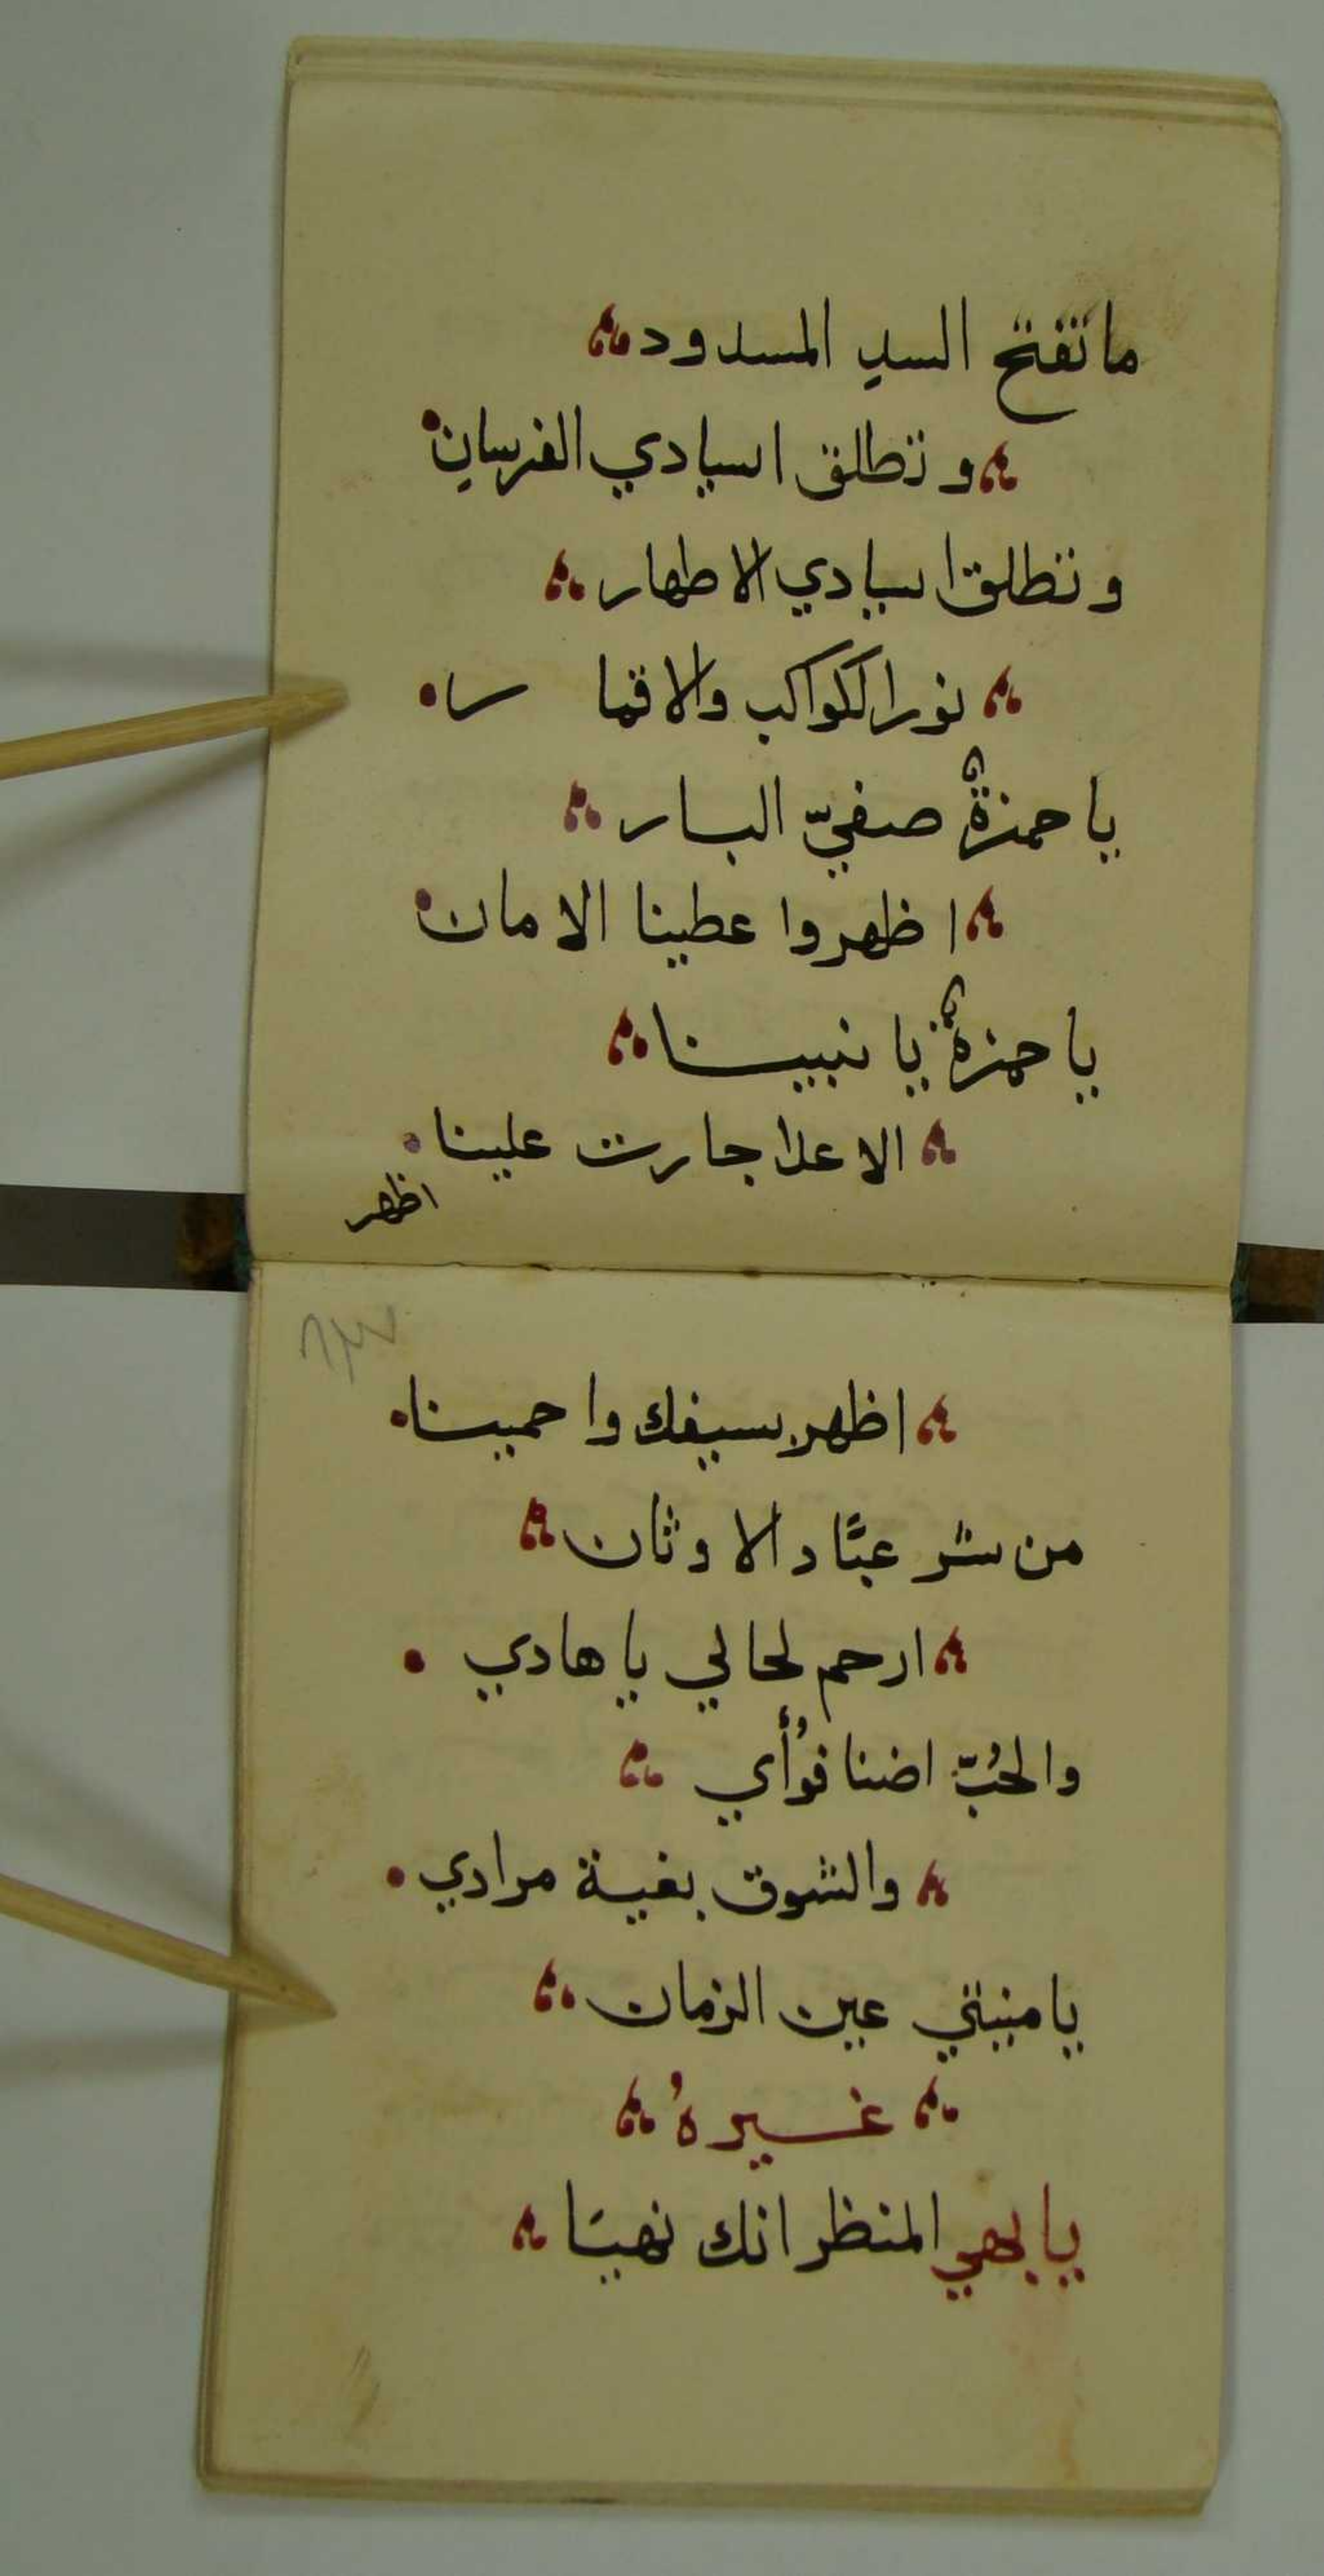 ما تفتح السدِ المسدود
و تطلق اسيادي الفرسانِ
و تطلق اسيادي الاطهار
نور الكواكب والاقمار
يا حمزةُ صفيّ البار
اظهروا عطينا الامان
يا حمزةُ يا نبينا
الاعدا جارت علينا
اظهر
٦٣
اظهر بسيفك واحمينا
من شر عبَّاد الاوثان
ارحم لحالي يا هادي
والحُبّ اضنا فوُأي
والشوق بغية مرادي
يا منيتي عين الزمان
غيرهُ
يا بهي المنظر انك نهيَا